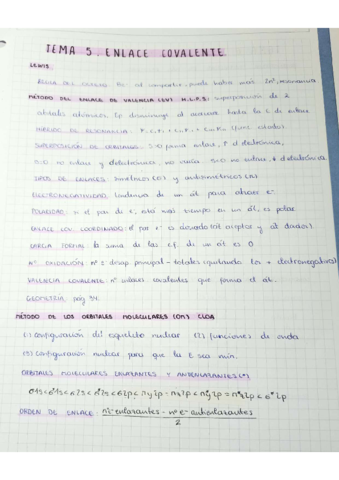 TEMA 5. ENLACE COVALENTE
LEWIS
REGLA DEL OCTETO: no al compartir, puede haber más 2nº, resonancia
MÉTODO DEL ENLACE DE VALENCIA (EV) superposición de 2
orbitales atómicos. Ep disminuye al acercarse hasta la L de enlace
HÍBRIDO DE RESONANCIA:
SUPERPOSICIÓN DE ORBITALES: S>0 enlace, P electrónica,
S<0 no enlace y electrónica, no varía S=0 no enlace, electrónica
TIPOS DE ENLACES: simétricos (σ) y antisimétricos (π)
ELECTRONEGATIVIDAD: tendencia de un át para atraer e⁻
POLARIDAD: si el par de e⁻ está más tiempo en un át, es polar
ENLACE COV. COORDINADO: el par e⁻ es donado (át aceptor y át dador)
CARGA FORMAL: la suma de las c.f. de un át es 0
Nº OXIDACIÓN: nº e⁻ desap. principal - totales (quitando los + electronegativos)
VALENCIA COVALENTE: nº enlaces covalentes que forma el át.
GEOMETRÍA: pág 94.
MÉTODO DE LOS ORBITALES MOLECULARES (OM) CLOA
(1) configuración del esqueleto nuclear (2) funciones de onda
(3) configuración nuclear para que la E sea mín.
ORBITALES MOLECULARES ENLAZANTES Y ANTIENLAZANTES (*)
σ1s < σ*1s < σ2s < σ*2s < σ2p < πy2p = πz2p < π*y2p = π*z2p < σ*2p
ORDEN DE ENLACE: nº e⁻ enlazantes - nº e⁻ antienlazantes
2